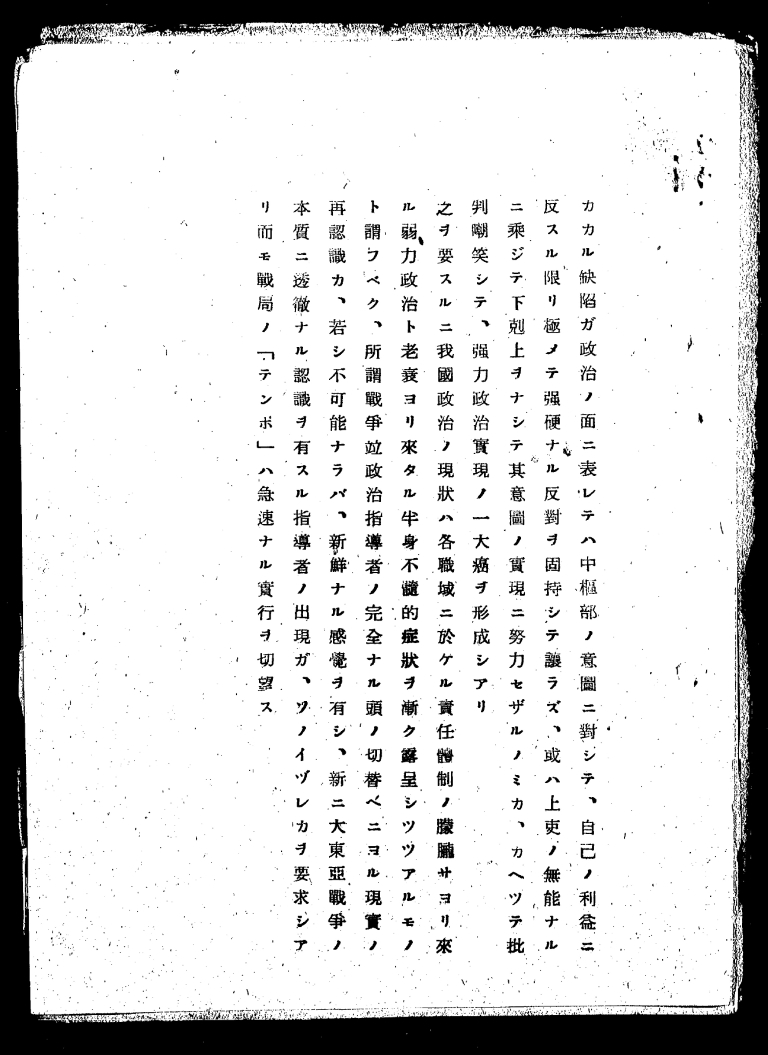 カカル缺陷ガ政治ノ面ニ表レテハ中樞部ノ意圖ニ對シテ、自己ノ利益ニ
反スル限リ極メテ强硬ナル反對ヲ固持シテ讓ラズ、或ハ上吏ノ無能ナル
ニ乘ジテ下剋上ヲナシテ其意圖ノ實現ニ努力セザルノミカ、カヘツテ批
判嘲笑シテ、强力政治實現ノ一大癌ヲ形成シアリ
之ヲ要スルニ我國政治ノ現狀ハ各職域ニ於ケル責任體制ノ朦朧サヨリ來
ル弱力政治ト老衰ヨリ來タル半身不髓的症狀ヲ漸ク露呈シツツアルモノ
ト謂フベク、所謂戰爭竝政治指導者ノ完全ナル頭ノ切替ベニヨル現實ノ
再認識カ、若シ不可能ナラバ、新鮮ナル感覺ヲ有シ、新ニ大東亞戰爭ノ
本質ニ透徹ナル認識ヲ有スル指導者ノ出現ガ、ソノイヅレカヲ要求シア
リ而モ戰局ノ「テンポ」ハ急速ナル實行ヲ切望ス